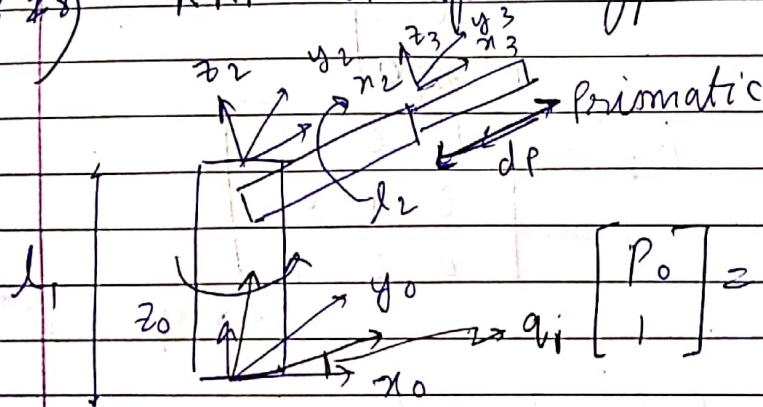 28)
z2 y2 x2 z3 y3 x3
Prismatic
dp
l2
l1
z0 y0 q1 [P0 1] =
x0